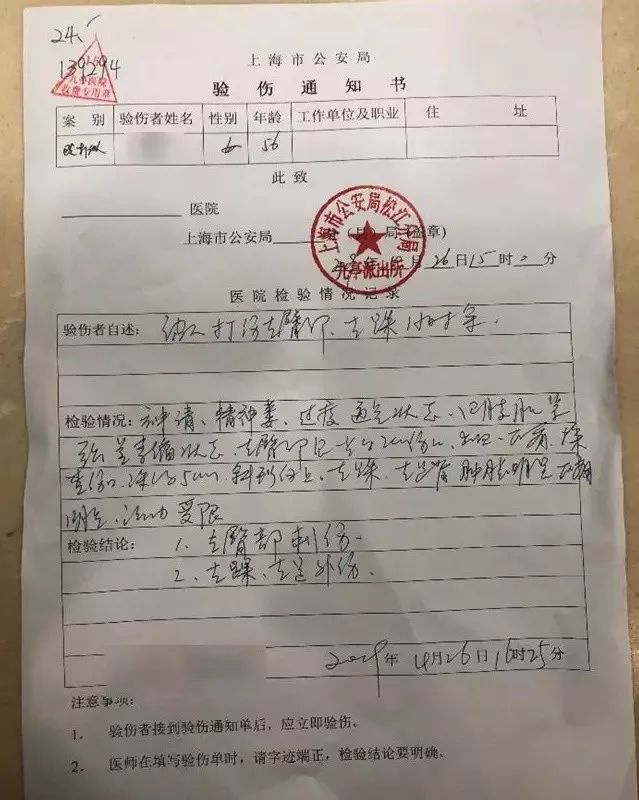 24.
139294
九亭医院
收费专用章
上海市公安局
验 伤 通 知 书
案 别 验伤者姓名 性别 年龄 工作单位及职业 住 址
女 56
此 致
医院
上海市公安局 局(盖章)
上海市公安局松江分局
九亭派出所
月 26 日 15 时 分
医院检验情况记录
验伤者自述: 被人打伤左臀部、左踝1小时余.
检验情况: 神清、精神萎、过度通气状态、四肢肌
左臀部 2cm伤口, 出血
伤口深约5cm, 斜形向上, 左踝、左足背肿胀明显
活动受限
检验结论: 1. 左臀部刺伤.
2. 左踝、左足外伤.
年 4月26日16时25分
注意事项:
1. 验伤者接到验伤通知单后,应立即验伤。
2. 医师在填写验伤单时,请字迹端正,检验结论要明确。